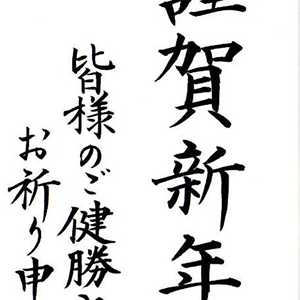 謹賀新年
皆様のご健勝
お祈り申